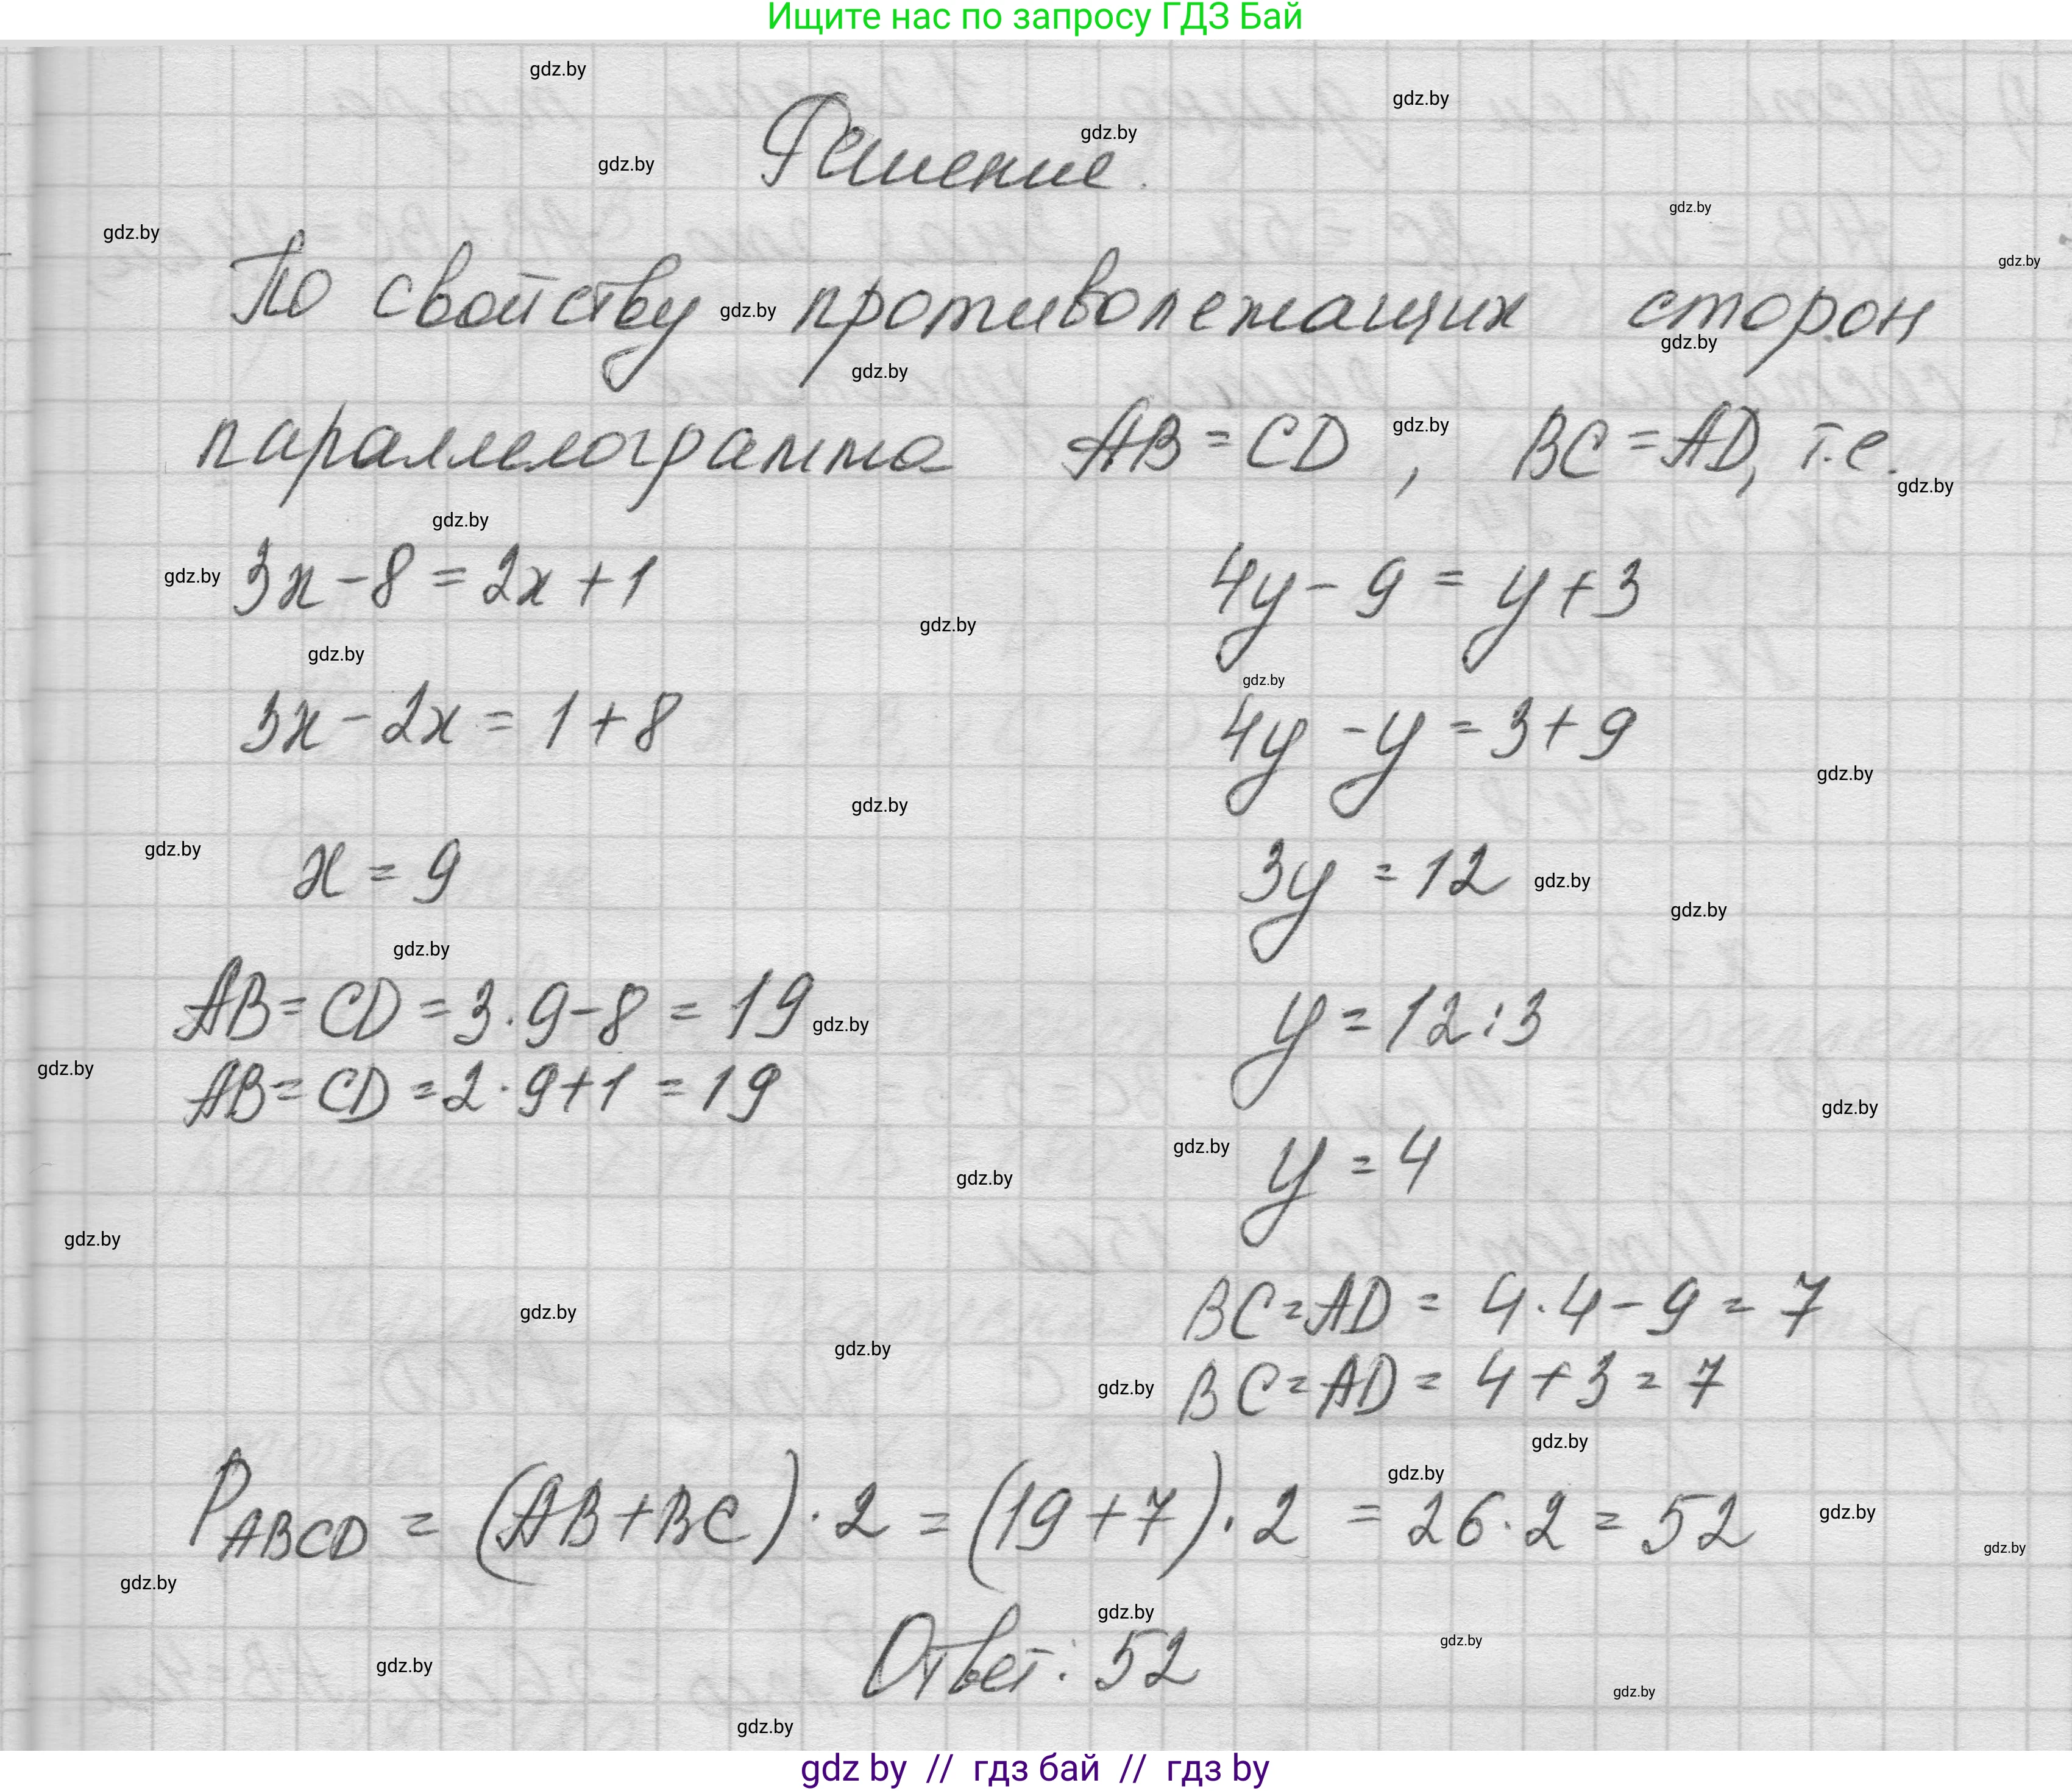 Ищите нас по запросу ГДЗ Бай
gdz.by
gdz.by
gdz.by
gdz.by
Решение.
gdz.by
gdz.by
gdz.by
По свойству gdz.by противолежащих сторон
gdz.by
gdz.by
параллелограмма AB = CD, gdz.by BC = AD, т.е.
gdz.by
gdz.by
gdz.by 3x - 8 = 2x + 1 4y - 9 = y + 3
gdz.by
gdz.by
gdz.by
3x - 2x = 1 + 8 4y - y = 3 + 9
gdz.by
gdz.by
gdz.by x = 9 3y = 12 gdz.by
gdz.by
gdz.by
AB = CD = 3 · 9 - 8 = 19 gdz.by y = 12 : 3
gdz.by AB = CD = 2 · 9 + 1 = 19
gdz.by
gdz.by y = 4
gdz.by
gdz.by
gdz.by BC = AD = 4 · 4 - 9 = 7
gdz.by
gdz.by BC = AD = 4 + 3 = 7
gdz.by
gdz.by
P ABCD = (AB + BC) · 2 = (19 + 7) · 2 = 26 · 2 = 52 gdz.by
gdz.by
gdz.by
gdz.by
gdz.by
Ответ: 52
gdz.by
gdz.by
gdz.by
gdz by // гдз бай // гдз by